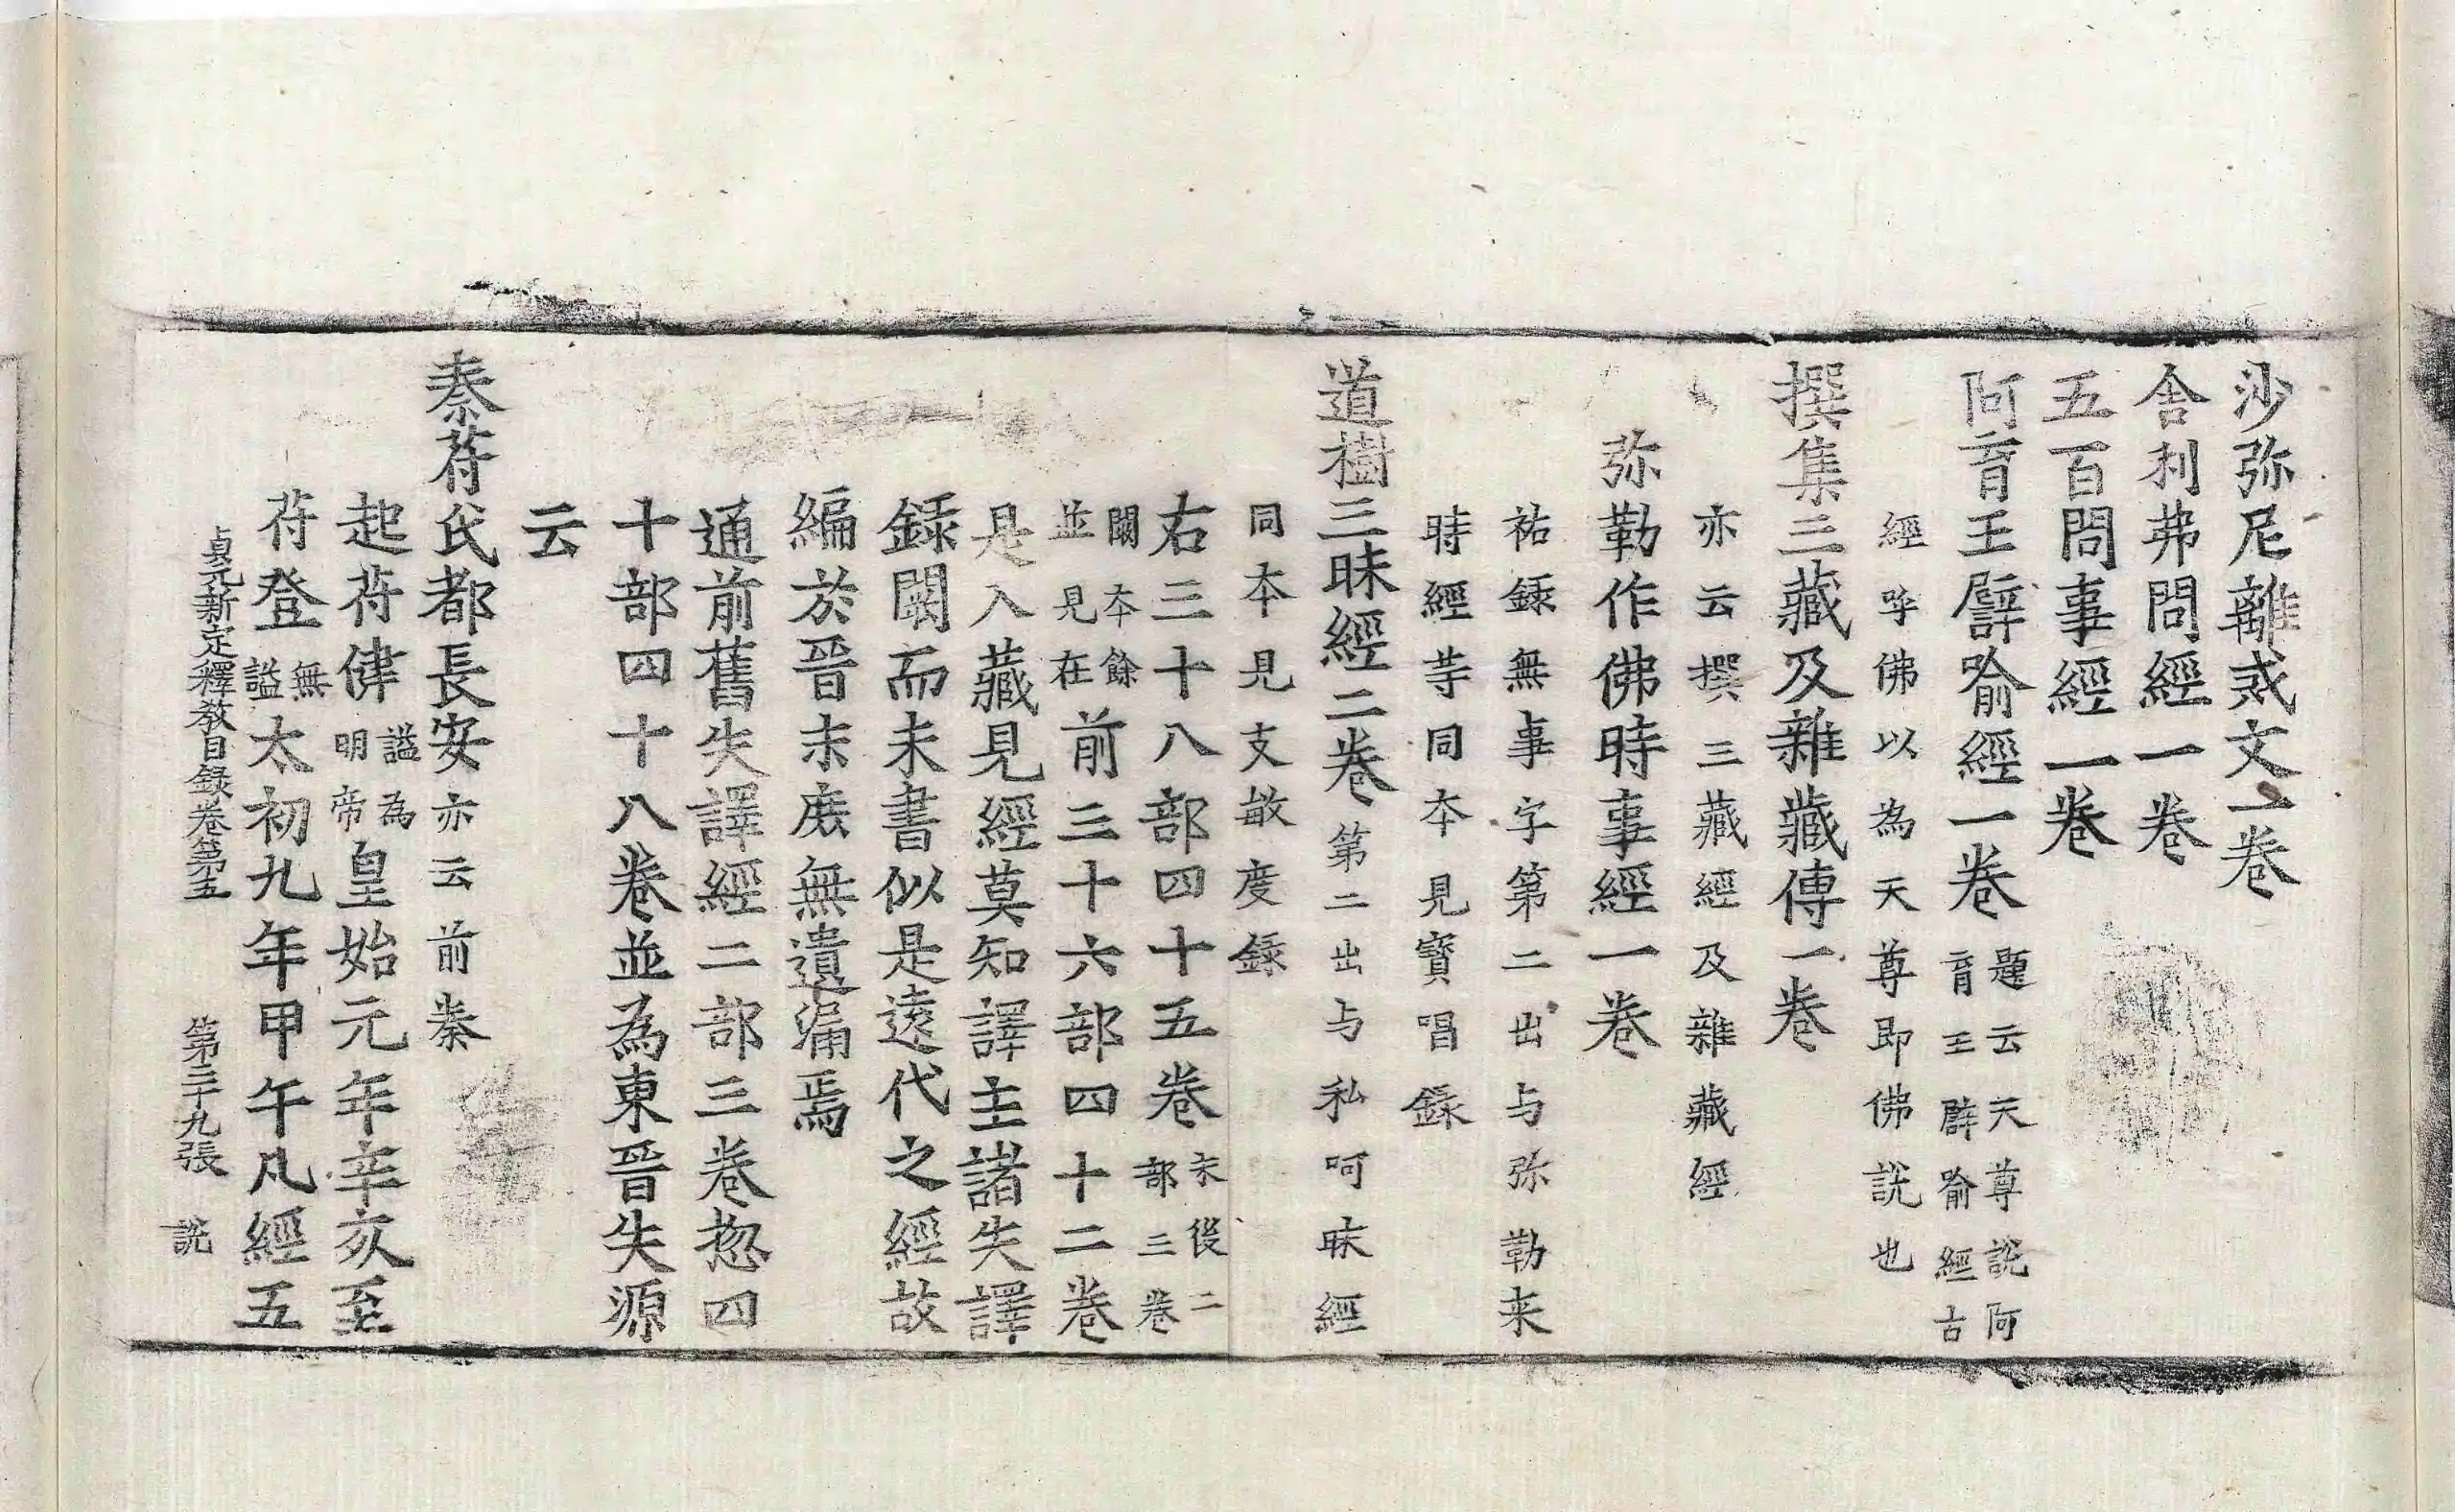 沙弥尼離戒文一卷
舍利弗問經一卷
五百問事經一卷
阿育王譬喻經一卷 題云天尊說阿育王譬喻經古
經呼佛以為天尊即佛說也
撰集三藏及雜藏傳一卷
亦云撰三藏經及雜藏經
弥勒作佛時事經一卷
祐錄無事字第二出与弥勒来
時經等同本見寶唱錄
道樹三昧經二卷 第二出与私呵昧經
同本見支敏度錄
右三十八部四十五卷 末後二部三卷
闕本餘並見在 前三十六部四十二卷
是入藏見經莫知譯主諸失譯
錄闕而未書似是遠代之經故
編於晉末庶無遺漏焉
通前舊失譯經二部三卷惣四
十部四十八卷並為東晉失源
云
秦苻氏都長安亦云前秦
起苻健 謚為明帝 皇始元年辛亥至
苻登 無謚 太初九年甲午凡經五
貞元新定釋教目錄卷第五 第三十九張 說